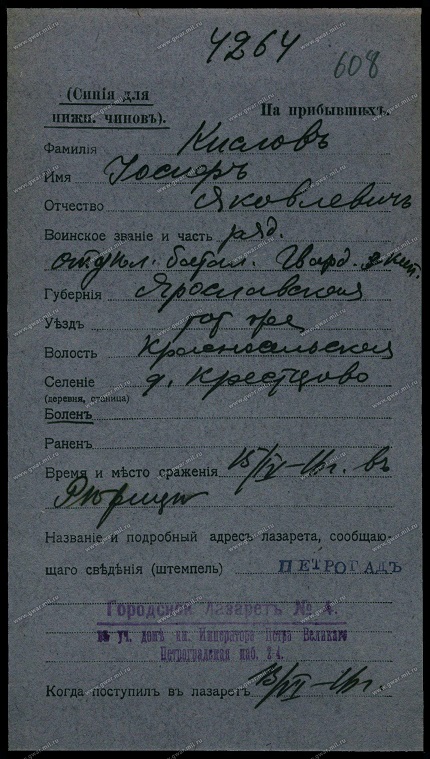 4264
608
(Синія для
нижн. чиновъ).
На прибывшихъ.
Фамилія Кисловъ
Имя Іосифъ
Отчество Яковлевичъ
Воинское званіе и часть ряд.
батал. Гвард. экип.
Губернія Ярославская
Уѣздъ
Волость Красносельская
Селеніе д. Крестцово
(деревня, станица)
Боленъ
Раненъ
Время и мѣсто сраженія 15/IV-16г. въ
Названіе и подробный адресъ лазарета, сообщаю-
щаго свѣдѣнія (штемпель) ПЕТРОГАДЪ
Городской лазаретъ № 4.
въ уч. домѣ им. Императора Петра Великаго
Петроградская наб. 2-4.
Когда поступил въ лазаретъ 13/VI-16г.